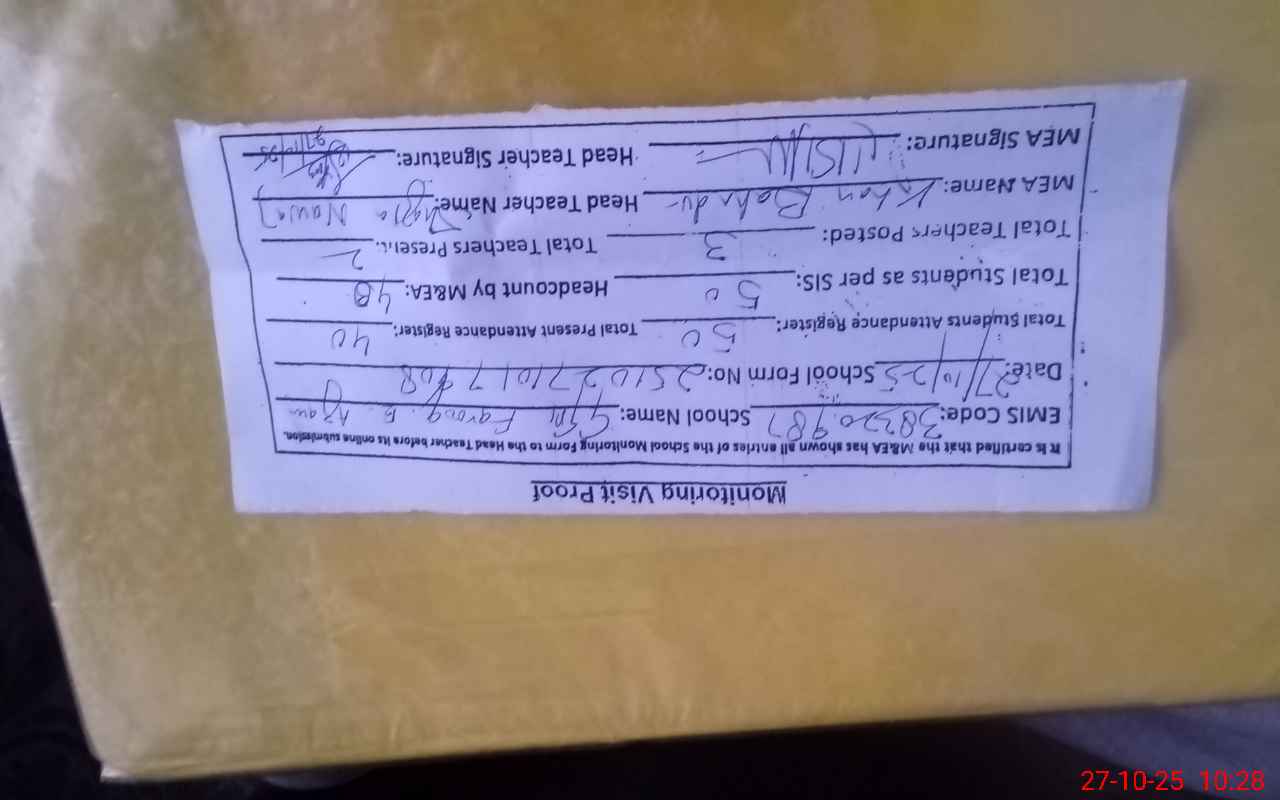 Monitoring Visit Proof
It is certified that the M&EA has shown all entries of the School Monitoring Form to the Head Teacher before its online submission.
EMIS Code: 38320987 School Name: Farooq
Date: 27/10/25 School Form No:
Total Students Attendance Register: 50 Total Present Attendant Register: 40
Total Students as per SIS: 50 Headcount by M&EA: 40
Total Teachers Posted: 3 Total Teachers Present: 2
MEA Name: Khan Bahadu Head Teacher Name: Nawaz
MEA Signature: Head Teacher Signature:
27/10/25
27-10-25 10:28